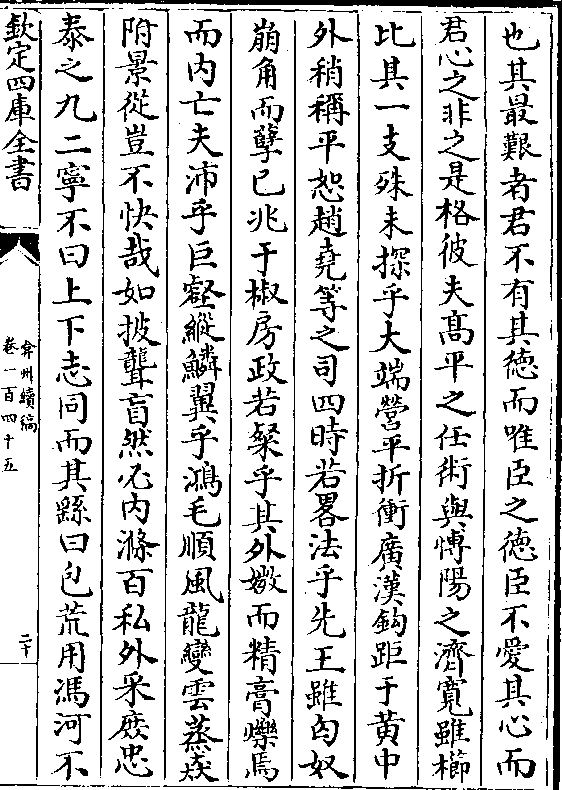 也其最艱者君不有其德而唯臣之德臣不愛其心而
君心之非之是格彼夫髙平之任術與博陽之濟寛雖櫛
比具一支殊未探乎大端營平折衝廣漢鈎距于黄中
外稍稱平恕趙堯等之司四時若畧法乎先王雖匈奴
崩角而孽已兆于椒房政若粲乎其外嫩而精膏爍焉
而内亡夫沛乎巨壑縱鱗翼乎鴻毛順風龍變雲蒸焱
附景從豈不快哉如披聾盲然必内滌百私外采庶忠
泰之九二寧不曰上下志同而其繇曰包荒用馮河不
欽定四庫全書
弇州續稿
卷一百四十五
二十